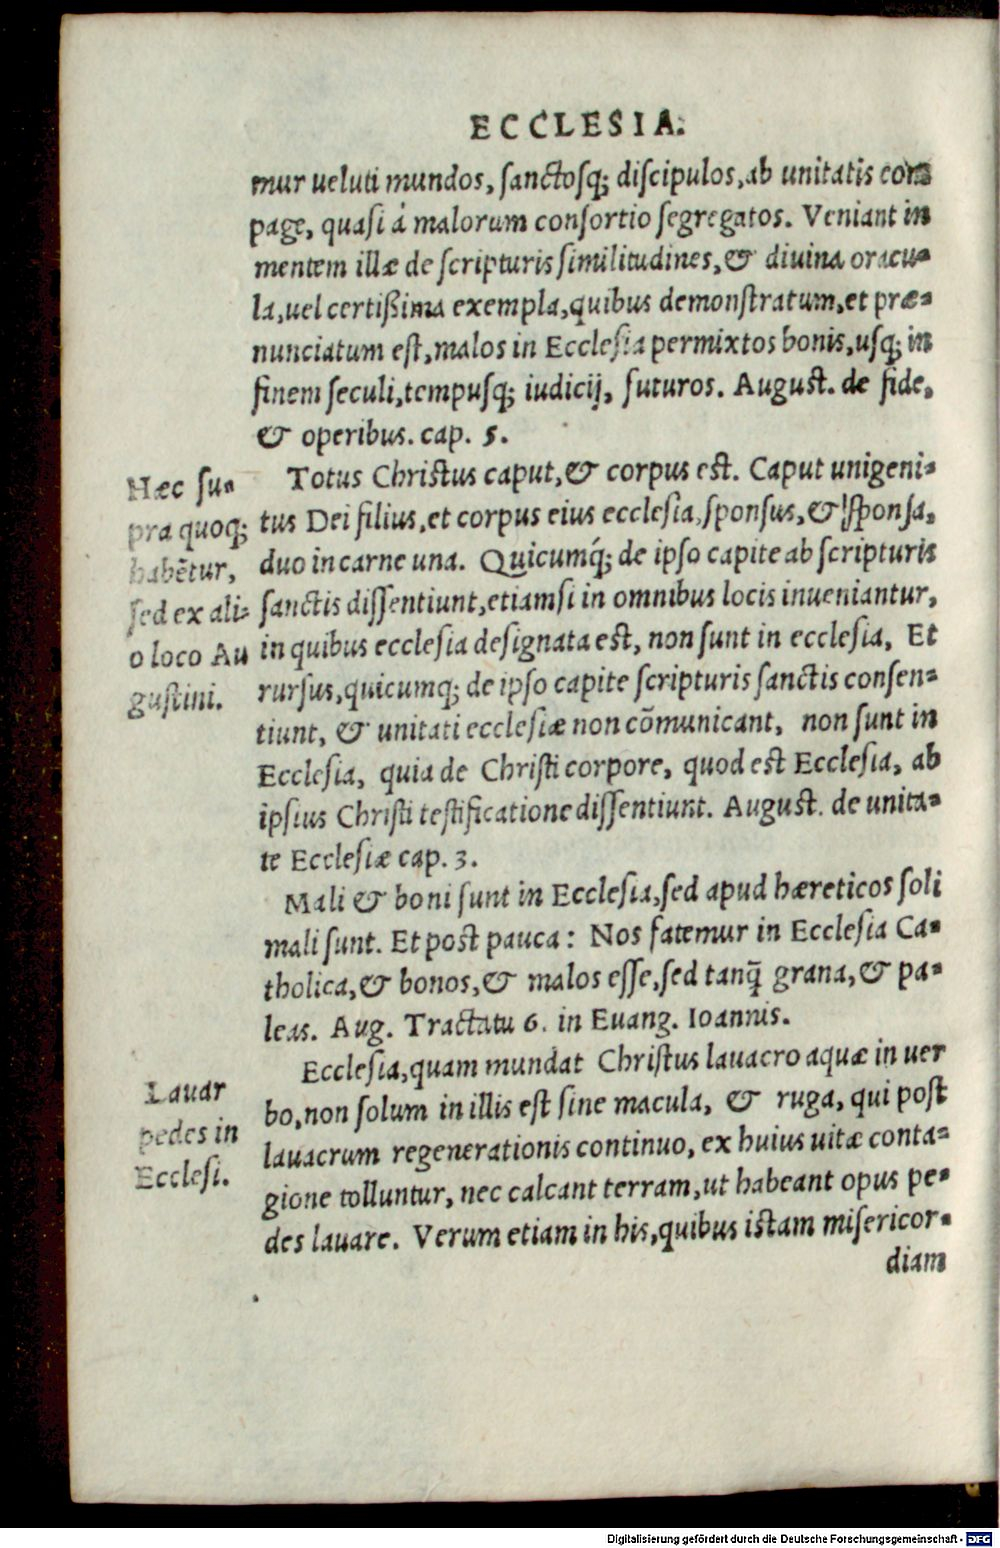 ECCLESIA.
mur ueluti mundos, sanctosq; discipulos, ab unitatis com-
page, quasi á malorum consortio segregatos. Veniant in
mentem illæ de scripturis similitudines, & diuina oracu-
la, uel certißima exempla, quibus demonstratum, et præ-
nunciatum est, malos in Ecclesia permixtos bonis, usq; in
finem seculi, tempusq; iudicij, futuros. August. de fide,
& operibus. cap. 5.
Hæc su-
pra quoq;
habẽtur,
sed ex ali-
o loco Au
gustini.
Totus Christus caput, & corpus est. Caput unigeni-
tus Dei filius, et corpus eius ecclesia, sponsus, & sponsa,
duo in carne una. Quicumq́; de ipso capite ab scripturis
sanctis dissentiunt, etiamsi in omnibus locis inueniantur,
in quibus ecclesia designata est, non sunt in ecclesia, Et
rursus, quicumq; de ipso capite scripturis sanctis consen-
tiunt, & unitati ecclesiæ non cõmunicant, non sunt in
Ecclesia, quia de Christi corpore, quod est Ecclesia, ab
ipsius Christi testificatione dissentiunt. August. de unita-
te Ecclesiæ cap. 3.
Mali & boni sunt in Ecclesia, sed apud hæreticos soli
mali sunt. Et post pauca: Nos fatemur in Ecclesia Ca-
tholica, & bonos, & malos esse, sed tanq̃ grana, & pa-
leas. Aug. Tractatu 6. in Euang. Ioannis.
Lauar
pedes in
Ecclesi.
Ecclesia, quam mundat Christus lauacro aquæ in uer
bo, non solum in illis est sine macula, & ruga, qui post
lauacrum regenerationis continuo, ex huius uitæ conta-
gione tolluntur, nec calcant terram, ut habeant opus pe-
des lauare. Verum etiam in his, quibus istam misericor-
diam
Digitalisierung gefördert durch die Deutsche Forschungsgemeinschaft - DFG